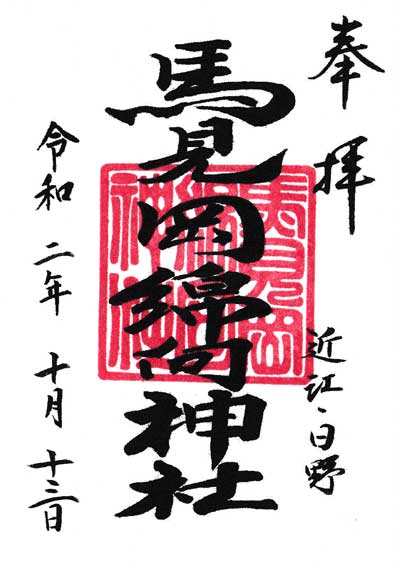 奉拝
近江・日野
馬見岡綿向神社
馬見岡
綿向
神社
令和二年十月十三日